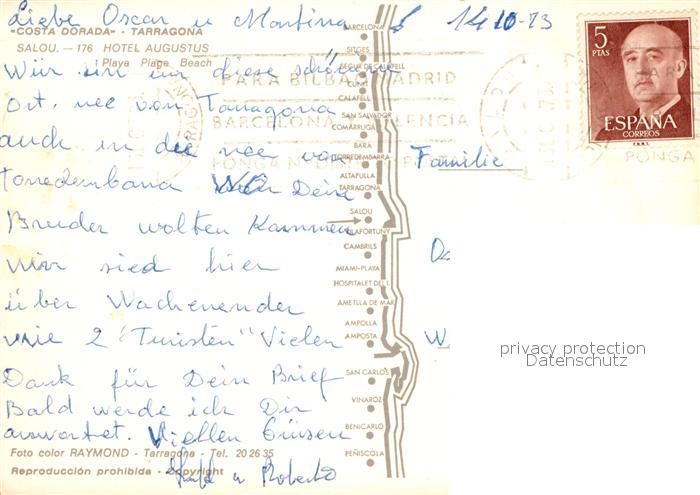 Liebe Oscar u Martina
14 10-73
"COSTA DORADA" - TARRAGONA
SALOU. — 176 HOTEL AUGUSTUS
Playa Plage Beach
Wür sin in diese schönene
ort, nee von Tarragona
auch in die nee von
Torredenbana wo Dein
Bruder wolten Kammen
wür sied hier
über Wachenender
wie 2 "Turisten" Vielen
Dank für Dein Brief
Bald werde ich Dir
answortet. Viellen Grüsen
u Roberto
Foto color RAYMOND - Tarragona - Tel. 20 26 35
Reproducción prohibida - Copyright
BARCELONA
SITGES
CUNIT
CALAFELL
SAN SALVADOR
COMARRUGA
BARA
TORREDEMBARRA
ALTAFULLA
TARRAGONA
SALOU
VILAFORTUNY
CAMBRILS
MIAMI-PLAYA
HOSPITALET DEL I.
AMETLLA DE MAR
AMPOLLA
AMPOSTA
SAN CARLOS
VINAROZ
BENICARLO
PEÑISCOLA
PARA BILBAO MADRID
BARCELONA VALENCIA
PONGA
5
PTAS
ESPAÑA
CORREOS
F.N.M.T.
PONGA
Familie
W
privacy protection
Datenschutz